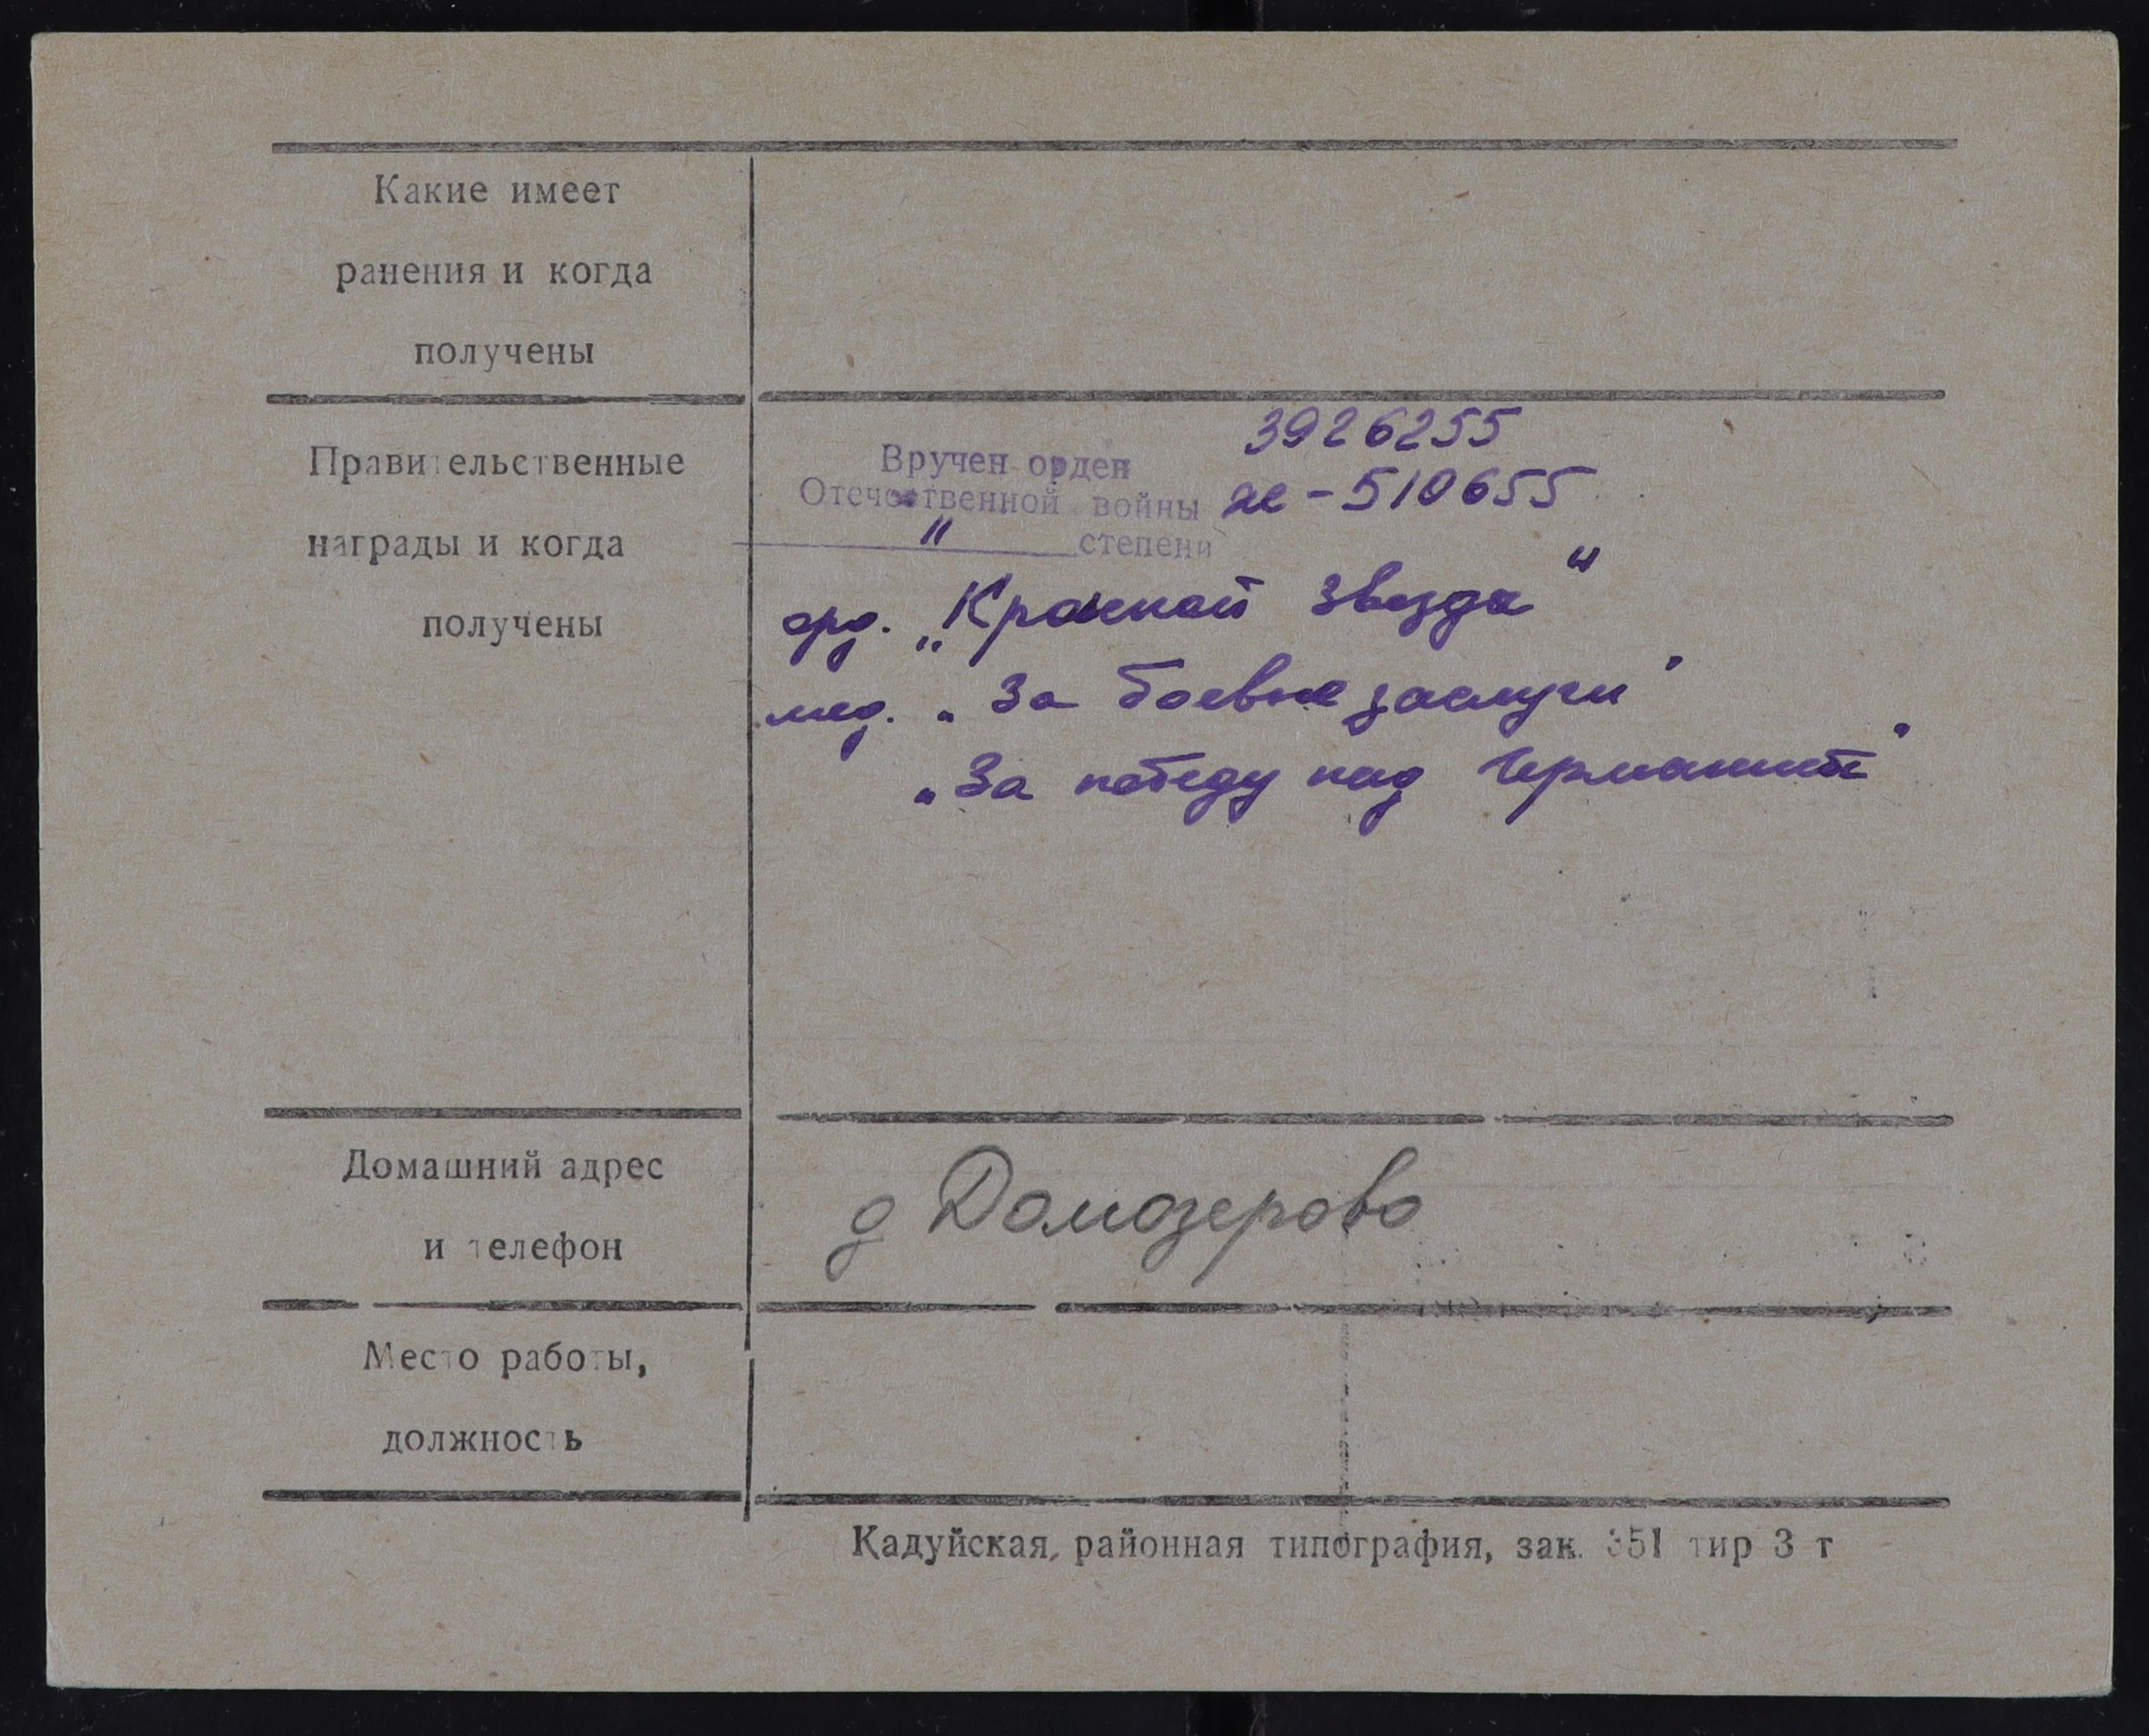 Какие имеет
ранения и когда
получены
Правительственные
награды и когда
получены
Вручен орден 3926255
Отечественной войны 510655
" степени
орд. „Красной Звезда"
мед. „За боевые заслуги"
„За победу над Германией"
Домашний адрес
и телефон
д Домозерово
Место работы,
должность
Кадуйская районная типография, зак. 351 тир 3 т